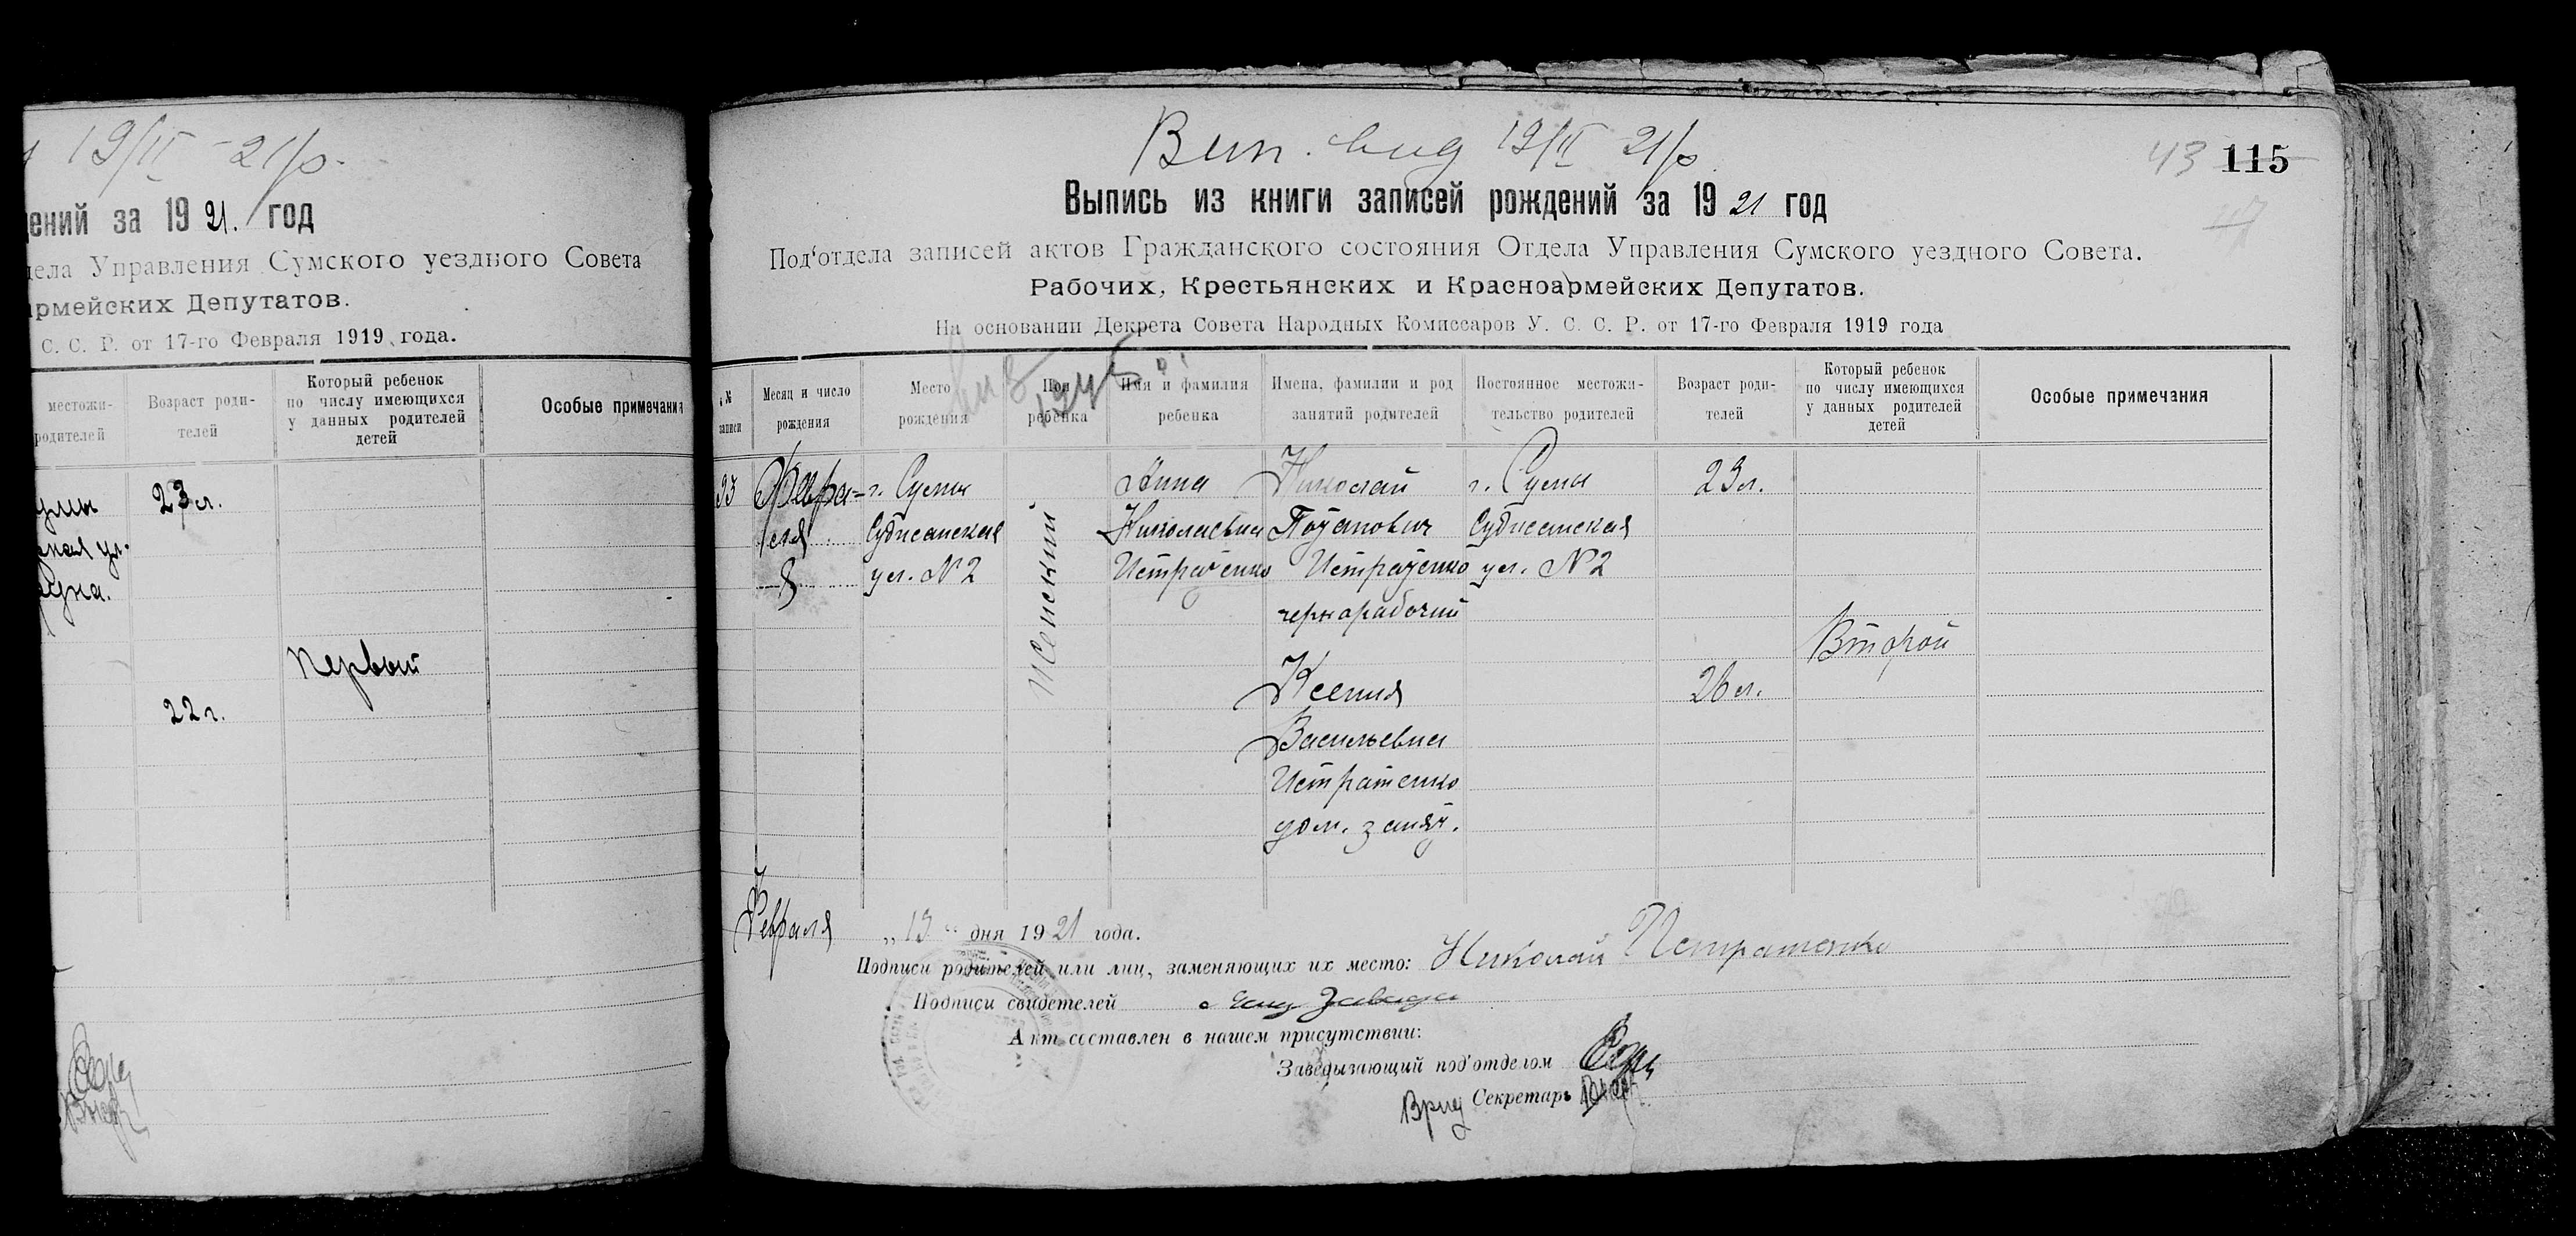 19/II - 21/р.
дений за 19 21. год
дела Управления Сумского уездного Совета
армейских Депутатов.
С. С. Р. от 17-го Февраля 1919 года.
местожи-
родителей
Возраст роди-
телей
Который ребенок
по числу имеющихся
у данных родителей
детей
Особые примечания
23 л.
Первый
22 г.
Вип. 19/II 21/р
43 115
Выпись из книги записей рождений за 19 21 год
Под'отдела записей актов Гражданского состояния Отдела Управления Сумского уездного Совета.
Рабочих, Крестьянских и Красноармейских Депутатов.
На основании Декрета Совета Народных Комиссаров У. С. С. Р. от 17-го Февраля 1919 года
№
записи
Месяц и число
рождения
Место
рождения
Пол
ребенка
Имя и фамилия
ребенка
Имена, фамилии и род
занятий родителей
Постоянное местожи-
тельство родителей
Возраст роди-
телей
Который ребенок
по числу имеющихся
у данных родителей
детей
Особые примечания
Февра-
ля
8
г. Сумы
ул. № 2
Женский
Николаевна
Николай
чернорабочий
Ксения
Васильевна
Истратенко
дом. занят.
г. Сумы
ул. № 2
23 л.
26 л.
Второй
Февраля „13“ дня 19 21 года.
Подписи родителей или лиц, заменяющих их место: Николай Истратенко
Подписи свидетелей
Акт составлен в нашем присутствии:
Заведызающий под'отделом
Врид Секретарь